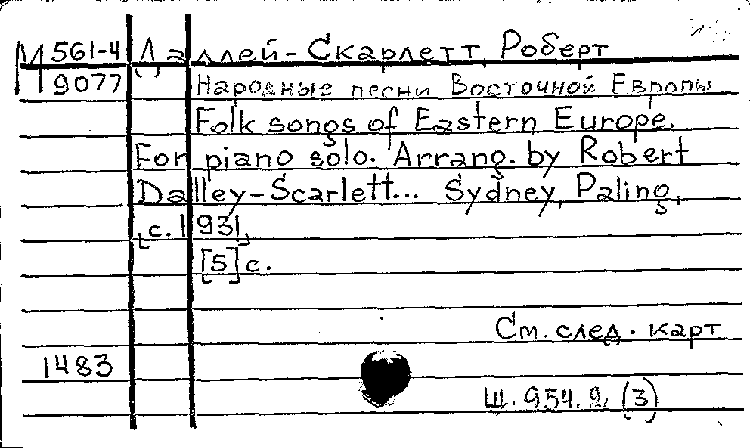 М 561-4 Даллей-Скарлетт, Роберт
9077 Народные песни Восточной Европы
Folk songs of Eastern Europe.
For piano solo. Arrang. by Robert
Dalley-Scarlett... Sydney, Paling,
[c. 1931]
[5] с.
См. след. карт
1483
Ш. 954. 9. (3)